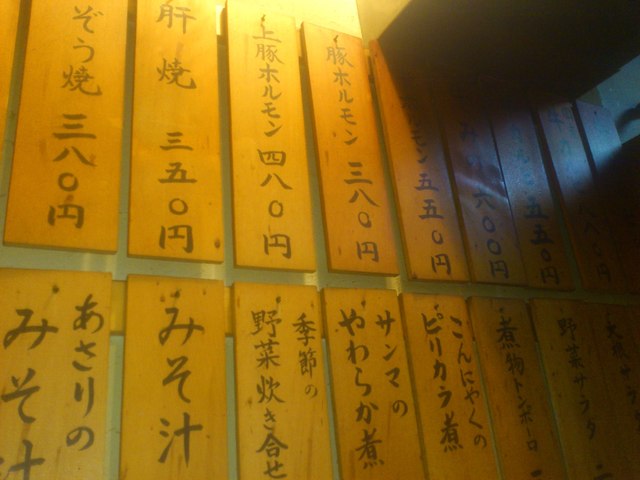 ぞう焼 三八〇円
肝焼 三五〇円
上豚ホルモン 四八〇円
豚ホルモン 三八〇円
モン 五五〇円
六〇〇円
五五〇円
八〇円
あさりの
みそ汁
みそ汁
季節の
野菜炊き合せ
サンマの
やわらか煮
こんにゃくの
ピリカラ煮
煮物トンボロ
野菜サラダ
大根サラダ